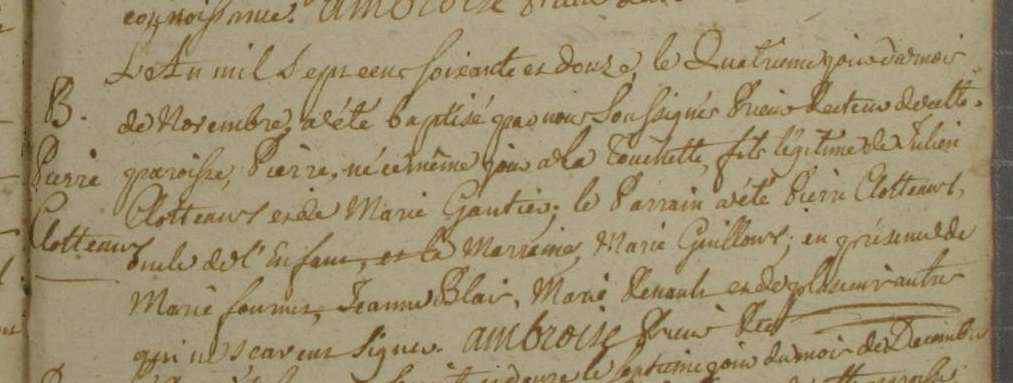 connoissance. ambroise Prieur
L'An mil sept cens soixante et douze, le Quatrieme jour du mois
B.
de Novembre, a été baptisé par nous soussigné Prieur Recteur de cette
Pierre
paroisse, Pierre, né ce même jour a la Touchette, fils légitime de Julien
Clotteaux
Clotteaux et de Marie Gautier; le Parrain a été Pierre Clotteaux,
oncle de l'Enfant, et la Marraine, Marie Guilloux; en présence de
Marie fournier, Jeanne Blair, Marie Renault et de plusieurs autres
qui ne scavent signer. ambroise Prieur Rec
douze le septieme jour du mois de Decembre